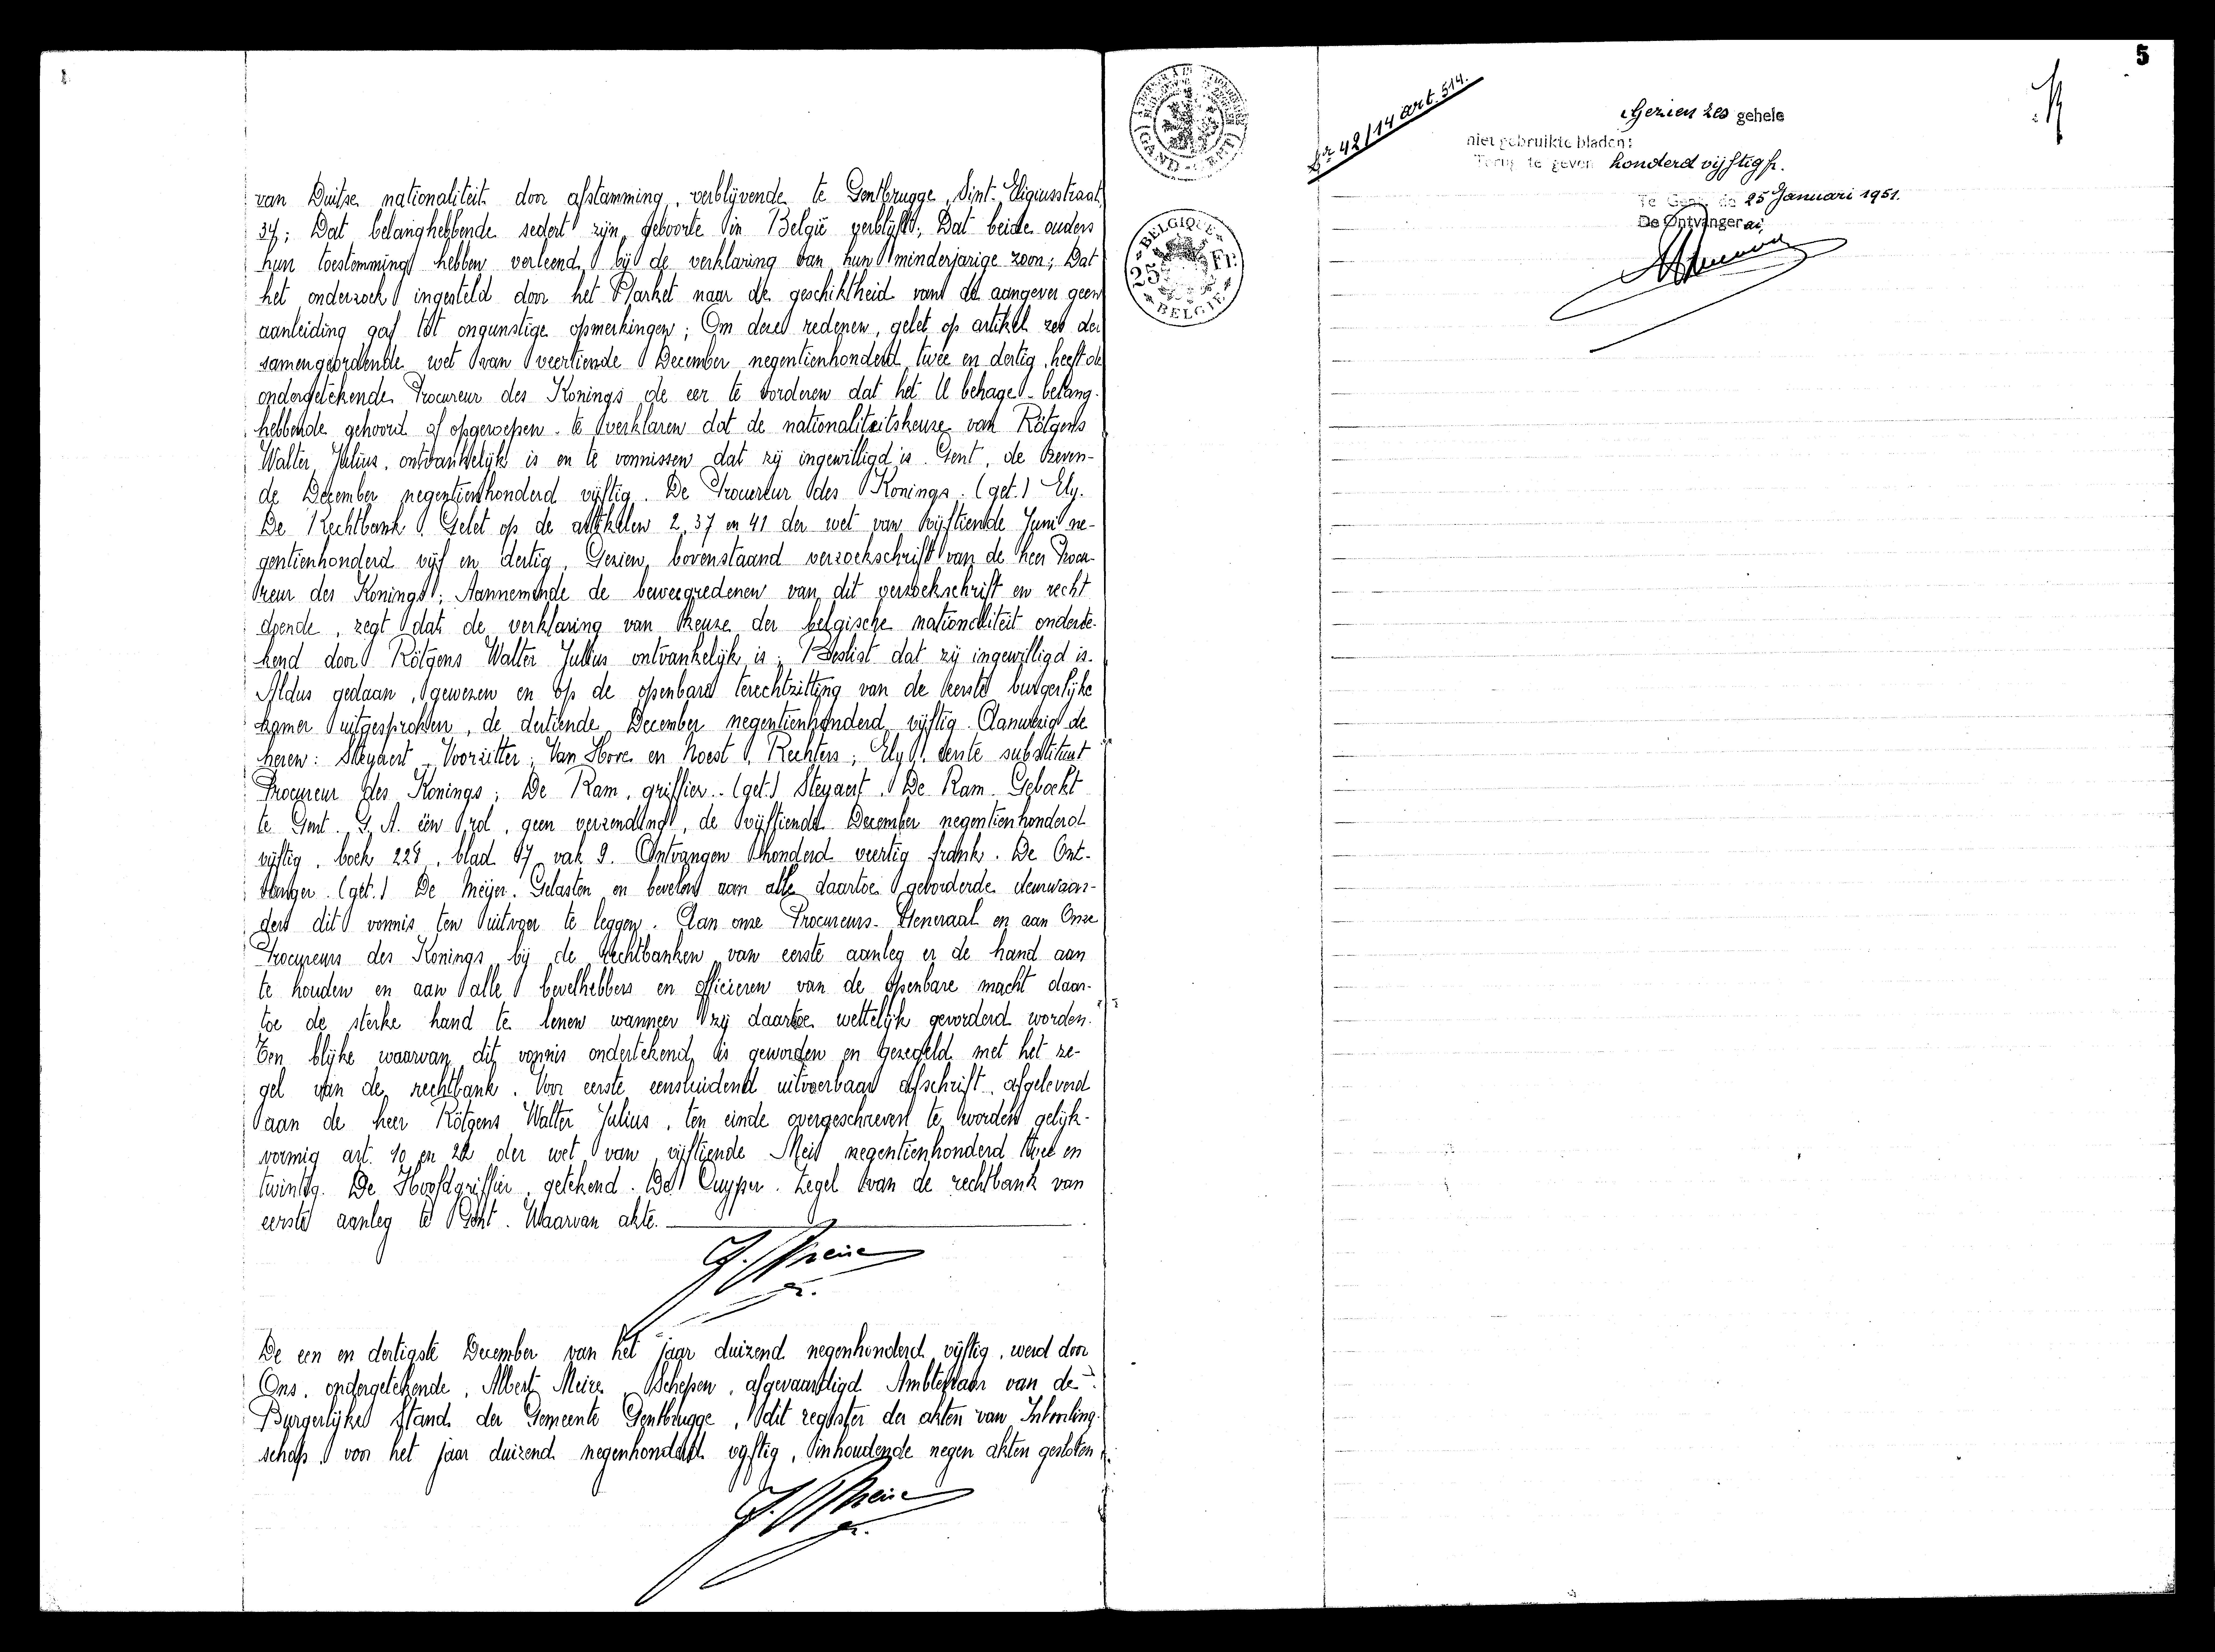 van Duitse nationaliteit door afstamming, verblijvende te Gentbrugge, Sint-Eligiusstraat,
34; Dat belanghebbende sedert zijn geboorte in België verblijft; Dat beide ouders
hun toestemming hebben verleend bij de verklaring van hun minderjarige zoon; Dat
het onderzoek ingesteld door het Parket naar de geschiktheid van de aangever geen
aanleiding gaf tot ongunstige opmerkingen; Om deze redenen, gelet op artikel zes der
samengeordende wet van veertiende December negentienhonderd twee en dertig, heeft de
ondergetekende Procureur des Konings de eer te vorderen dat het U behage - belang-
hebbende gehoord of opgeroepen - te verklaren dat de nationaliteitskeuze van Rötgens
Walter, Julius, ontvankelijk is en te vonnissen dat zij ingewilligd is. Gent, de zeven-
de December negentienhonderd vijftig. De Procureur des Konings. (get.) Ely.
De Rechtbank. Gelet op de artikelen 2, 37 en 41 der wet van vijftiende Juni ne-
gentienhonderd vijf en dertig, Gezien bovenstaand verzoekschrift van de heer Procu-
reur des Konings; Aannemende de beweegredenen van dit verzoekschrift en recht
doende, zegt dat de verklaring van keuze der belgische nationaliteit onderte-
kend door Rötgens Walter Julius ontvankelijk is; Beslist dat zij ingewilligd is.
Aldus gedaan, gewezen en op de openbare terechtzitting van de eerste burgerlijke
kamer uitgesproken, de dertiende December negentienhonderd vijftig. Aanwezig de
heren: Steyaert, Voorzitter, Van Hove en Noest, Rechters; Ely, eerste substituut
Procureur des Konings; De Ram, griffier. (get.) Steyaert. De Ram. Geboekt
te Gent. G. A. één rol, geen verzending, de vijftiende December negentienhonderd
vijftig, boek 228, blad 17 vak 9. Ontvangen honderd veertig frank. De Ont-
vanger. (get.) De Meijer. Gelasten en bevelen aan alle daartoe gevorderde deurwaar-
ders dit vonnis ten uitvoer te leggen. Aan onze Procureurs-Generaal en aan Onze
Procureurs des Konings bij de rechtbanken van eerste aanleg er de hand aan
te houden en aan alle bevelhebbers en officieren van de openbare macht daar-
toe de sterke hand te lenen wanneer zij daartoe wettelijk gevorderd worden.
Ten blijke waarvan dit vonnis ondertekend is geworden en gezegeld met het ze-
gel van de rechtbank. Voor eerste eensluidend uitvoerbaar afschrift, afgeleverd
aan de heer Rötgens Walter Julius, ten einde overgeschreven te worden gelijk-
vormig art. 10 en 22 der wet van vijftiende Mei negentienhonderd twee en
twintig. De Hoofdgriffier, getekend. De Cuyper. Zegel van de rechtbank van
eerste aanleg te Gent. Waarvan akte.
De een en dertigste December van het jaar duizend negenhonderd vijftig, werd door
Ons, ondergetekende, Albert Meire, Schepen, afgevaardigd Ambtenaar van de
Burgerlijke Stand der Gemeente Gentbrugge, dit register der akten van Inboorling-
schap voor het jaar duizend negenhonderd vijftig, inhoudende negen akten gesloten.
(GAND - GENT)
BELGIQUE
25 Fr.
BELGIE
42/14 art. 514.
Gezien zes gehele
niet gebruikte bladen:
Terug te geven honderd vijftig fr.
Te Gent de 25 Januari 1951.
De Ontvanger ai,
5